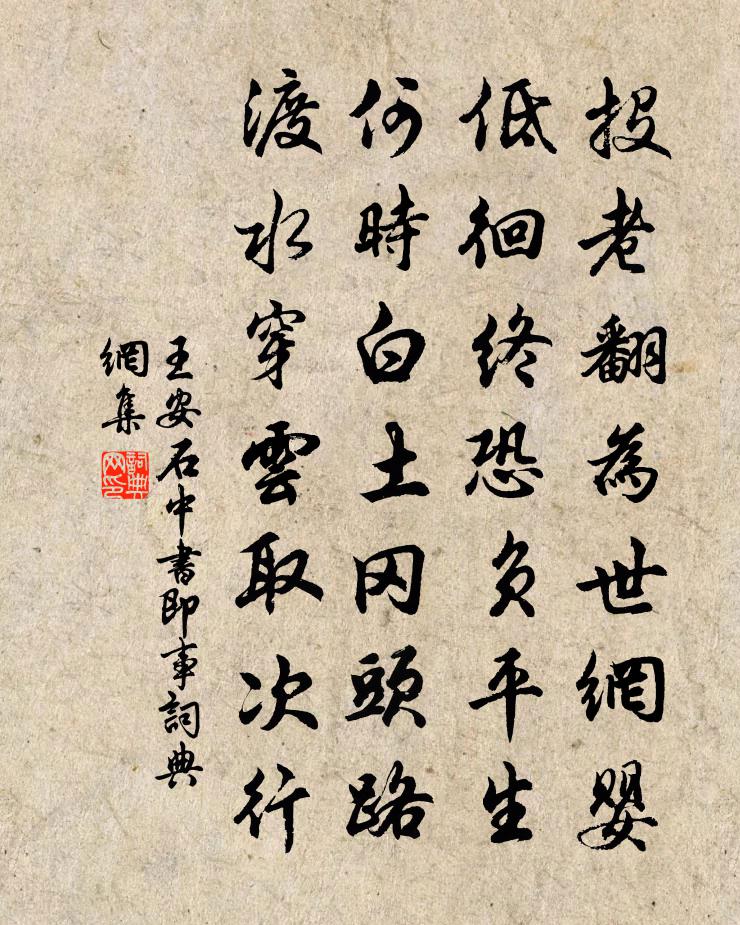 投老翻為世網嬰
低徊終恐負平生
何時白土冈頭路
渡水穿雲取次行
王安石中書即事詞典
網集
詞典
网印